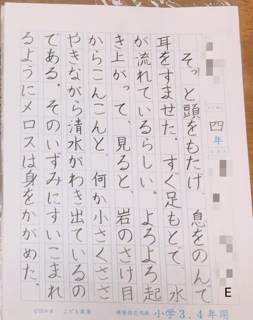 四年
そっと頭をもたげ、息をのんで
耳をすませた。すぐ足もとで、水
が流れているらしい。よろよろ起
き上がって、見ると、岩のさけ目
からこんこんと、何か小さくささ
やきながら清水がわき出ているの
である。そのいずみにすいこまれ
るようにメロスは身をかがめた。
E
こども書道
硬筆指定用紙
小学3.4年用